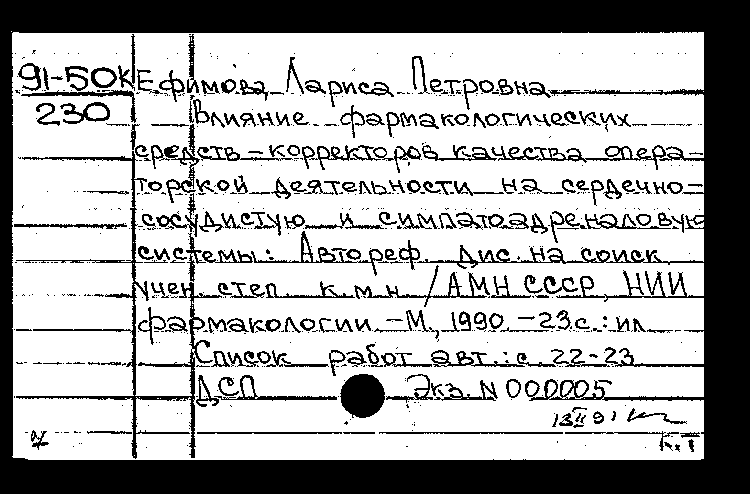 91-50К Ефимова Лариса Петровна
230 Влияние фармакологических
средств-корректоров качества опера-
торской деятельности на сердечно-
сосудистую и симпатоадреналовую
системы: Автореф. дис. на соиск.
учен. степ. к.м.н. / АМН СССР, НИИ
фармакологии. -М., 1990. -23с.: ил
Список работ авт.: с. 22-23
ДСП Экз. N 000005
13 II 91
К.Т